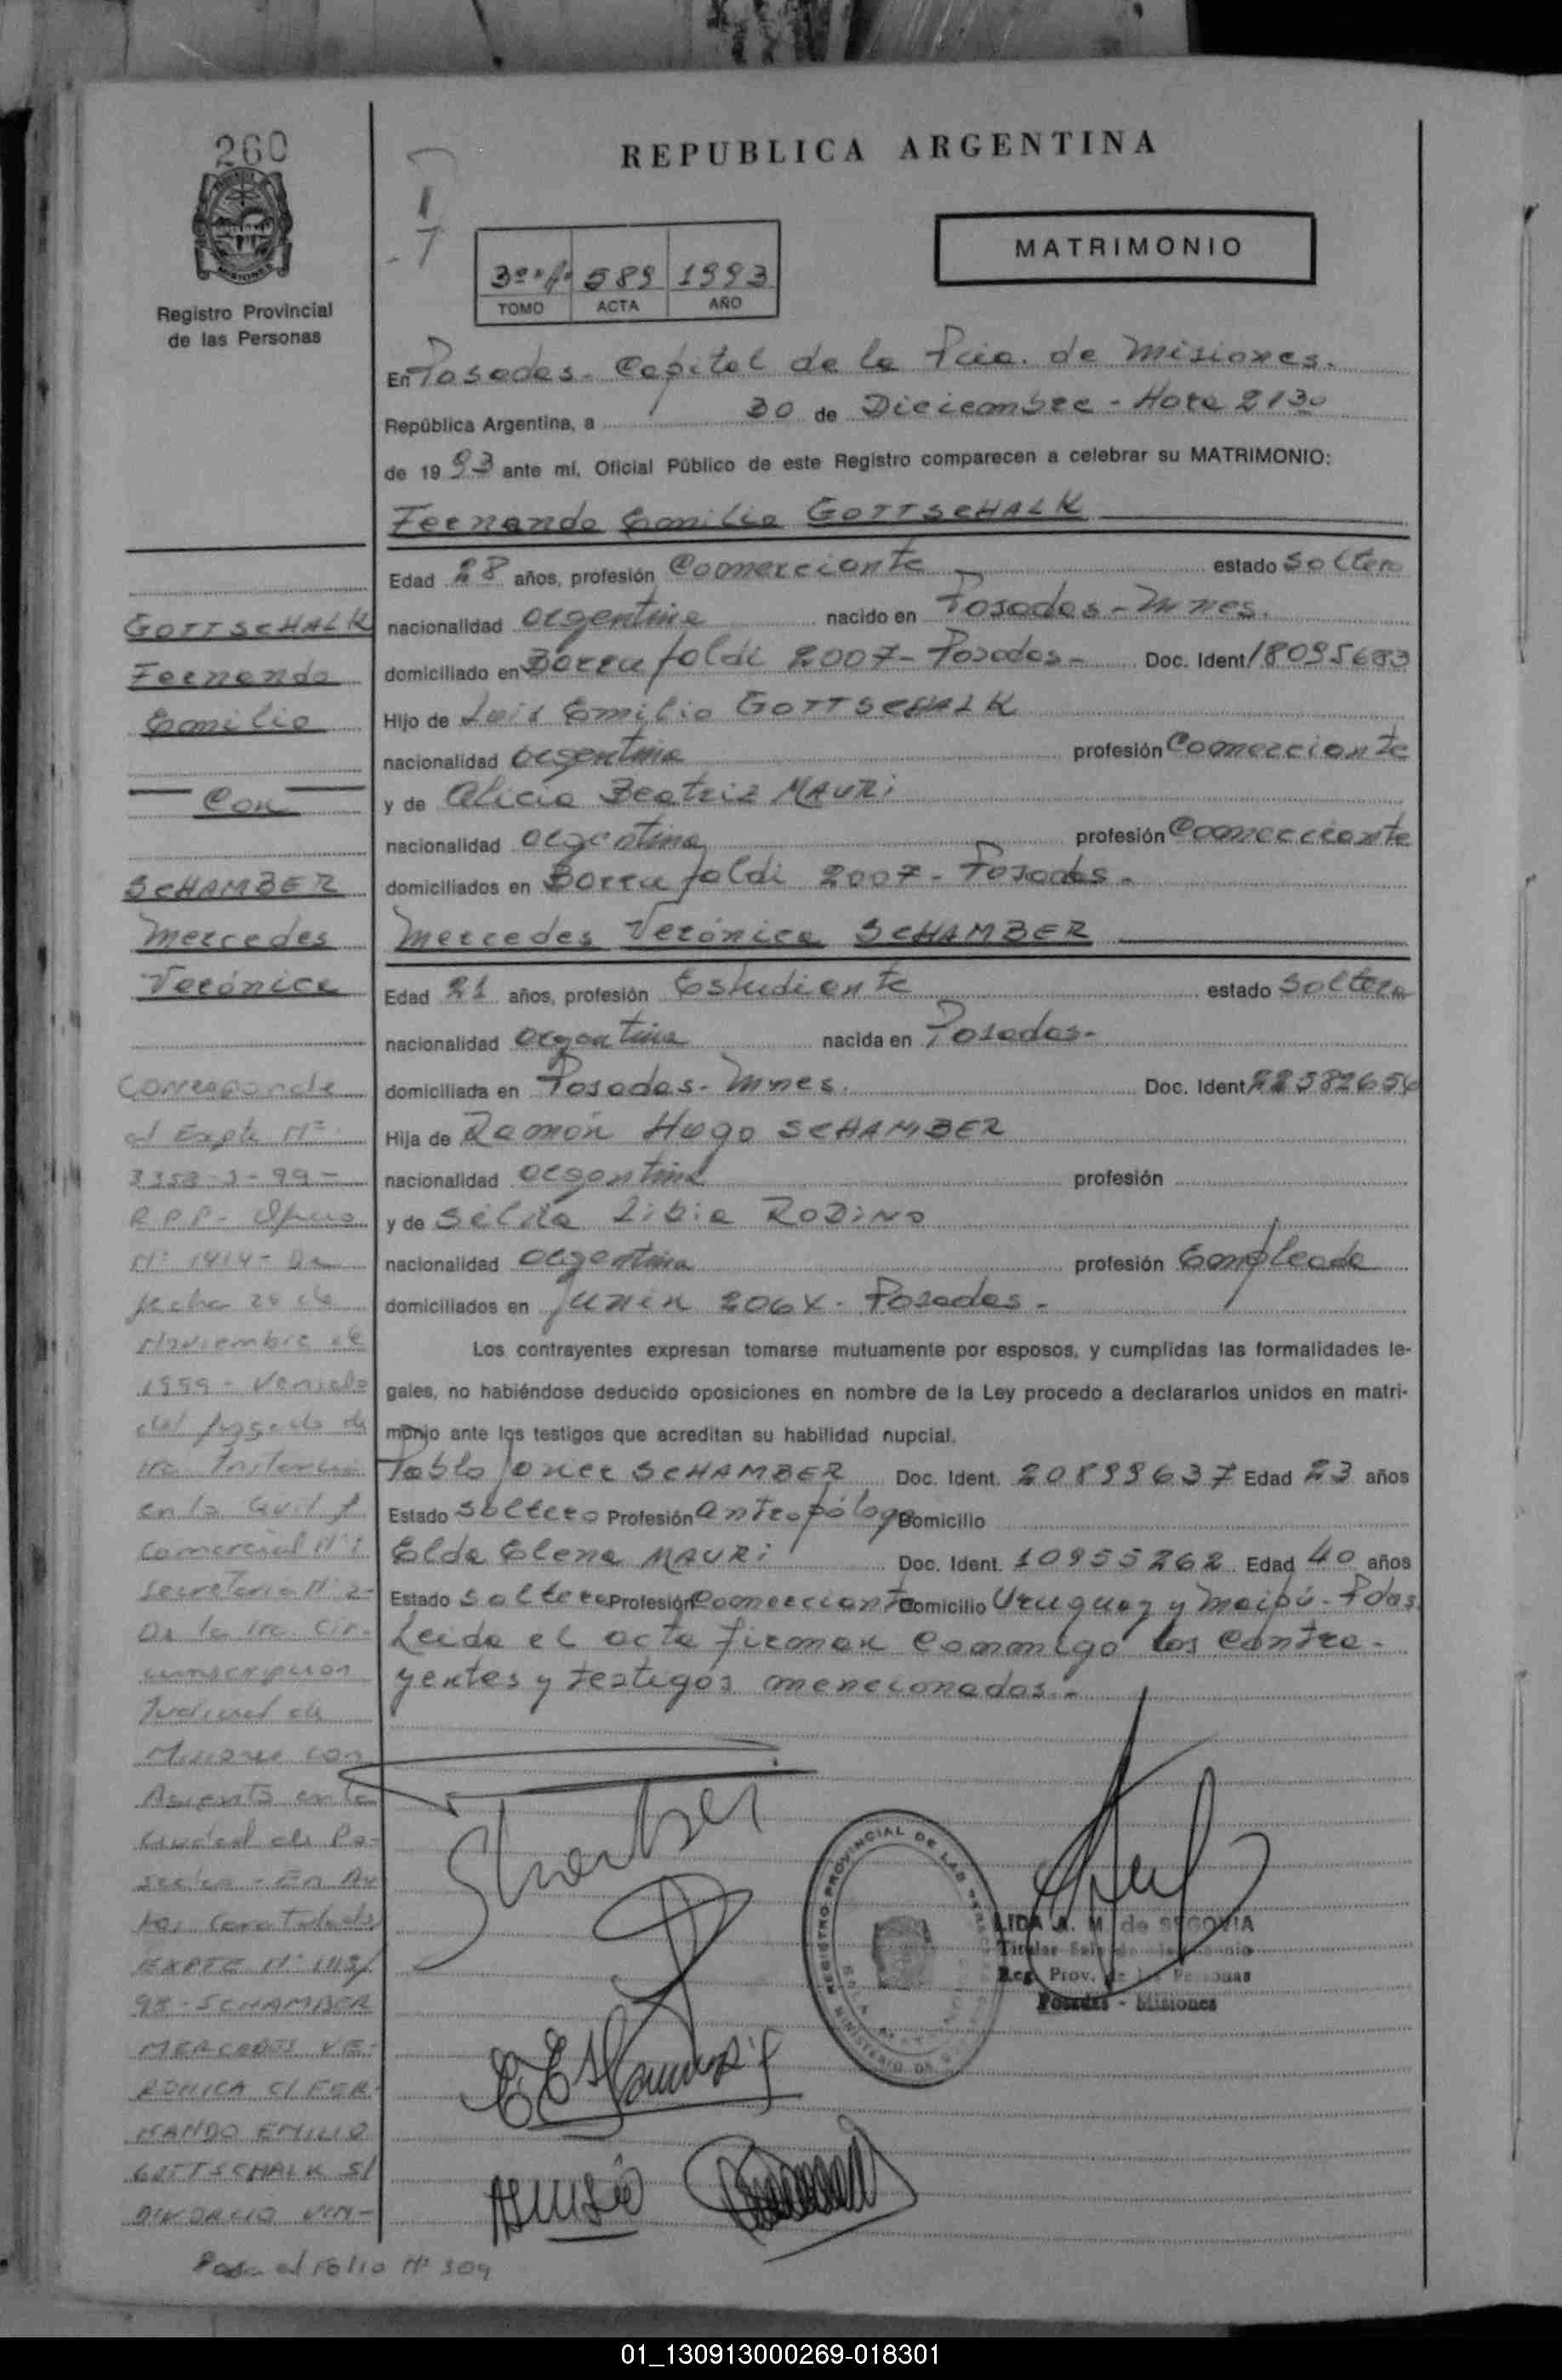 260
REPUBLICA ARGENTINA
MATRIMONIO
3º "A" 589 1993
TOMO ACTA AÑO
Registro Provincial
de las Personas
En Posadas - Capital de la Pcia. de Misiones.
República Argentina, a 30 de Diciembre - Hora 2130
de 1993 ante mí, Oficial Público de este Registro comparecen a celebrar su MATRIMONIO:
Fernando Emilio GOTTSCHALK
Edad 28 años, profesión Comerciante estado Soltero
nacionalidad argentina nacido en Posadas - Mnes.
domiciliado en 2007 - Posadas - Doc. Ident 18095683
Hijo de Luis Emilio GOTTSCHALK
nacionalidad argentina profesión Comerciante
y de Alicia Beatriz MAURI
nacionalidad argentina profesión Comerciante
domiciliados en 2007 - Posadas -
Mercedes Verónica SCHAMBER
Edad 21 años, profesión Estudiante estado Soltera
nacionalidad argentina nacida en Posadas -
domiciliada en Posadas - Mnes. Doc. Ident
Hija de Ramón Hugo SCHAMBER
nacionalidad argentina profesión
y de Libia RODINO
nacionalidad argentina profesión Empleada
domiciliados en Junín - Posadas -
Los contrayentes expresan tomarse mutuamente por esposos, y cumplidas las formalidades le-
gales, no habiéndose deducido oposiciones en nombre de la Ley procedo a declararlos unidos en matri-
monio ante los testigos que acreditan su habilidad nupcial.
Pablo SCHAMBER Doc. Ident. 20899637 Edad 23 años
Estado Soltero Profesión antropólogo Domicilio
Elda Elena MAURI Doc. Ident. 10955262 Edad 40 años
Estado Soltera Profesión Comerciante Domicilio Uruguay y Maipú - Pdas.
Leida el acta firman conmigo los contra-
yentes y testigos mencionados. -
GOTTSCHALK
Fernando
Emilio
Con
SCHAMBER
Mercedes
Verónica
Corresponde
al Expte Nº
R.P.P. - Oficio
Nº 1414 - De
fecha 26 de
Noviembre de
1999 - Venido
del Juzgado de
1ra. Instancia
en lo Civil y
Comercial Nº 1
Secretaria Nº 2 -
De la 1ra. Cir-
cunscripcion
Judicial de
Misiones con
Asiento en la
Ciudad de Po-
sadas - En Au
tos Caratulados
EXPTE Nº
93 - SCHAMBER
MERCEDES VE-
RONICA C/ FER-
NANDO EMILIO
GOTTSCHALK S/
DIVORCIO VIN -
Pasa al Folio Nº 309
REGISTRO PROVINCIAL DE LAS PERSONAS
LIDA A. M. de SEGOVIA
Titular Sala de
Reg. Prov. de las Personas
Posadas - Misiones
01_130913000269-018301